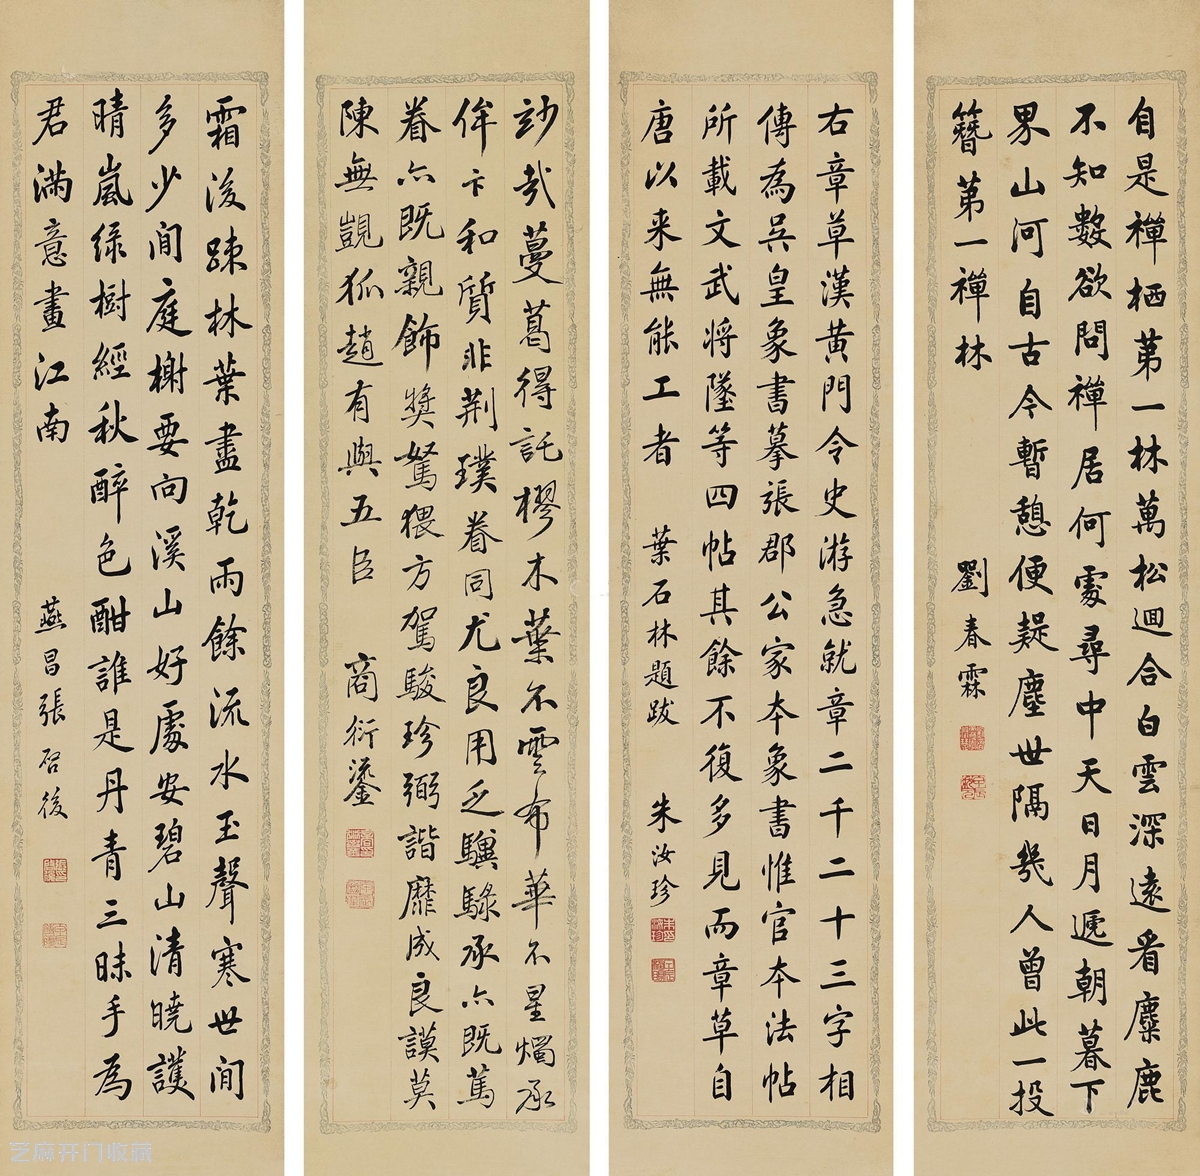 自是禪栖第一林萬松迴合白雲深遠看麋鹿
不知數欲問禪居何處尋中天日月遞朝暮下
界山河自古今暫憩便疑塵世隔幾人曾此一投
簪第一禪林
劉春霖
右章草漢黃門令史游急就章二千二十三字相
傳為吳皇象書摹張郡公家本象書惟官本法帖
所載文武將墜等四帖其餘不復多見而章草自
唐以来無能工者
葉石林題跋
朱汝珍
妙哉蔓葛得託樛木葉不雲布華不星燭承
侔卞和質非荆璞眷同尤良用乏驥騄承亦既篤
眷亦既親飾獎駑猥方駕駿珍弼諧靡成良謨莫
陳無覬狐趙有與五臣
商衍鎏
霜後踈林葉盡乾雨餘流水玉聲寒世間
多少閒庭榭要向溪山好處安碧山清曉護
晴嵐綠樹經秋醉色酣誰是丹青三昧手為
君滿意畫江南
燕昌張啓後
芝麻开门收藏